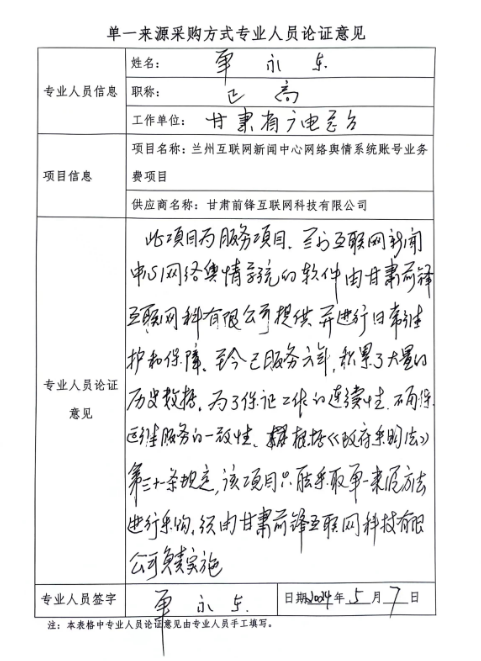 单一来源采购方式专业人员论证意见
专业人员信息
姓名：单永东
职称：正高
工作单位：甘肃省广电总台
项目信息
项目名称：兰州互联网新闻中心网络舆情系统账号业务
费项目
供应商名称：甘肃前锋互联网科技有限公司
专业人员论证
意见
此项目为服务项目，兰州互联网新闻
中心网络舆情系统的软件由甘肃前锋
互联网科有限公司提供并进行日常维
护和保障，至今已服务六年，积累了大量的
历史数据，为了保证工作的连续性，不确保
后续服务的一致性、根据《政府采购法》
第三十一条规定，该项目只能采取单一来源方法
进行采购，须由甘肃前锋互联网科技有限
公司负责实施
专业人员签字
单永东
日期2024年5月7日
注：本表格中专业人员论证意见由专业人员手工填写。